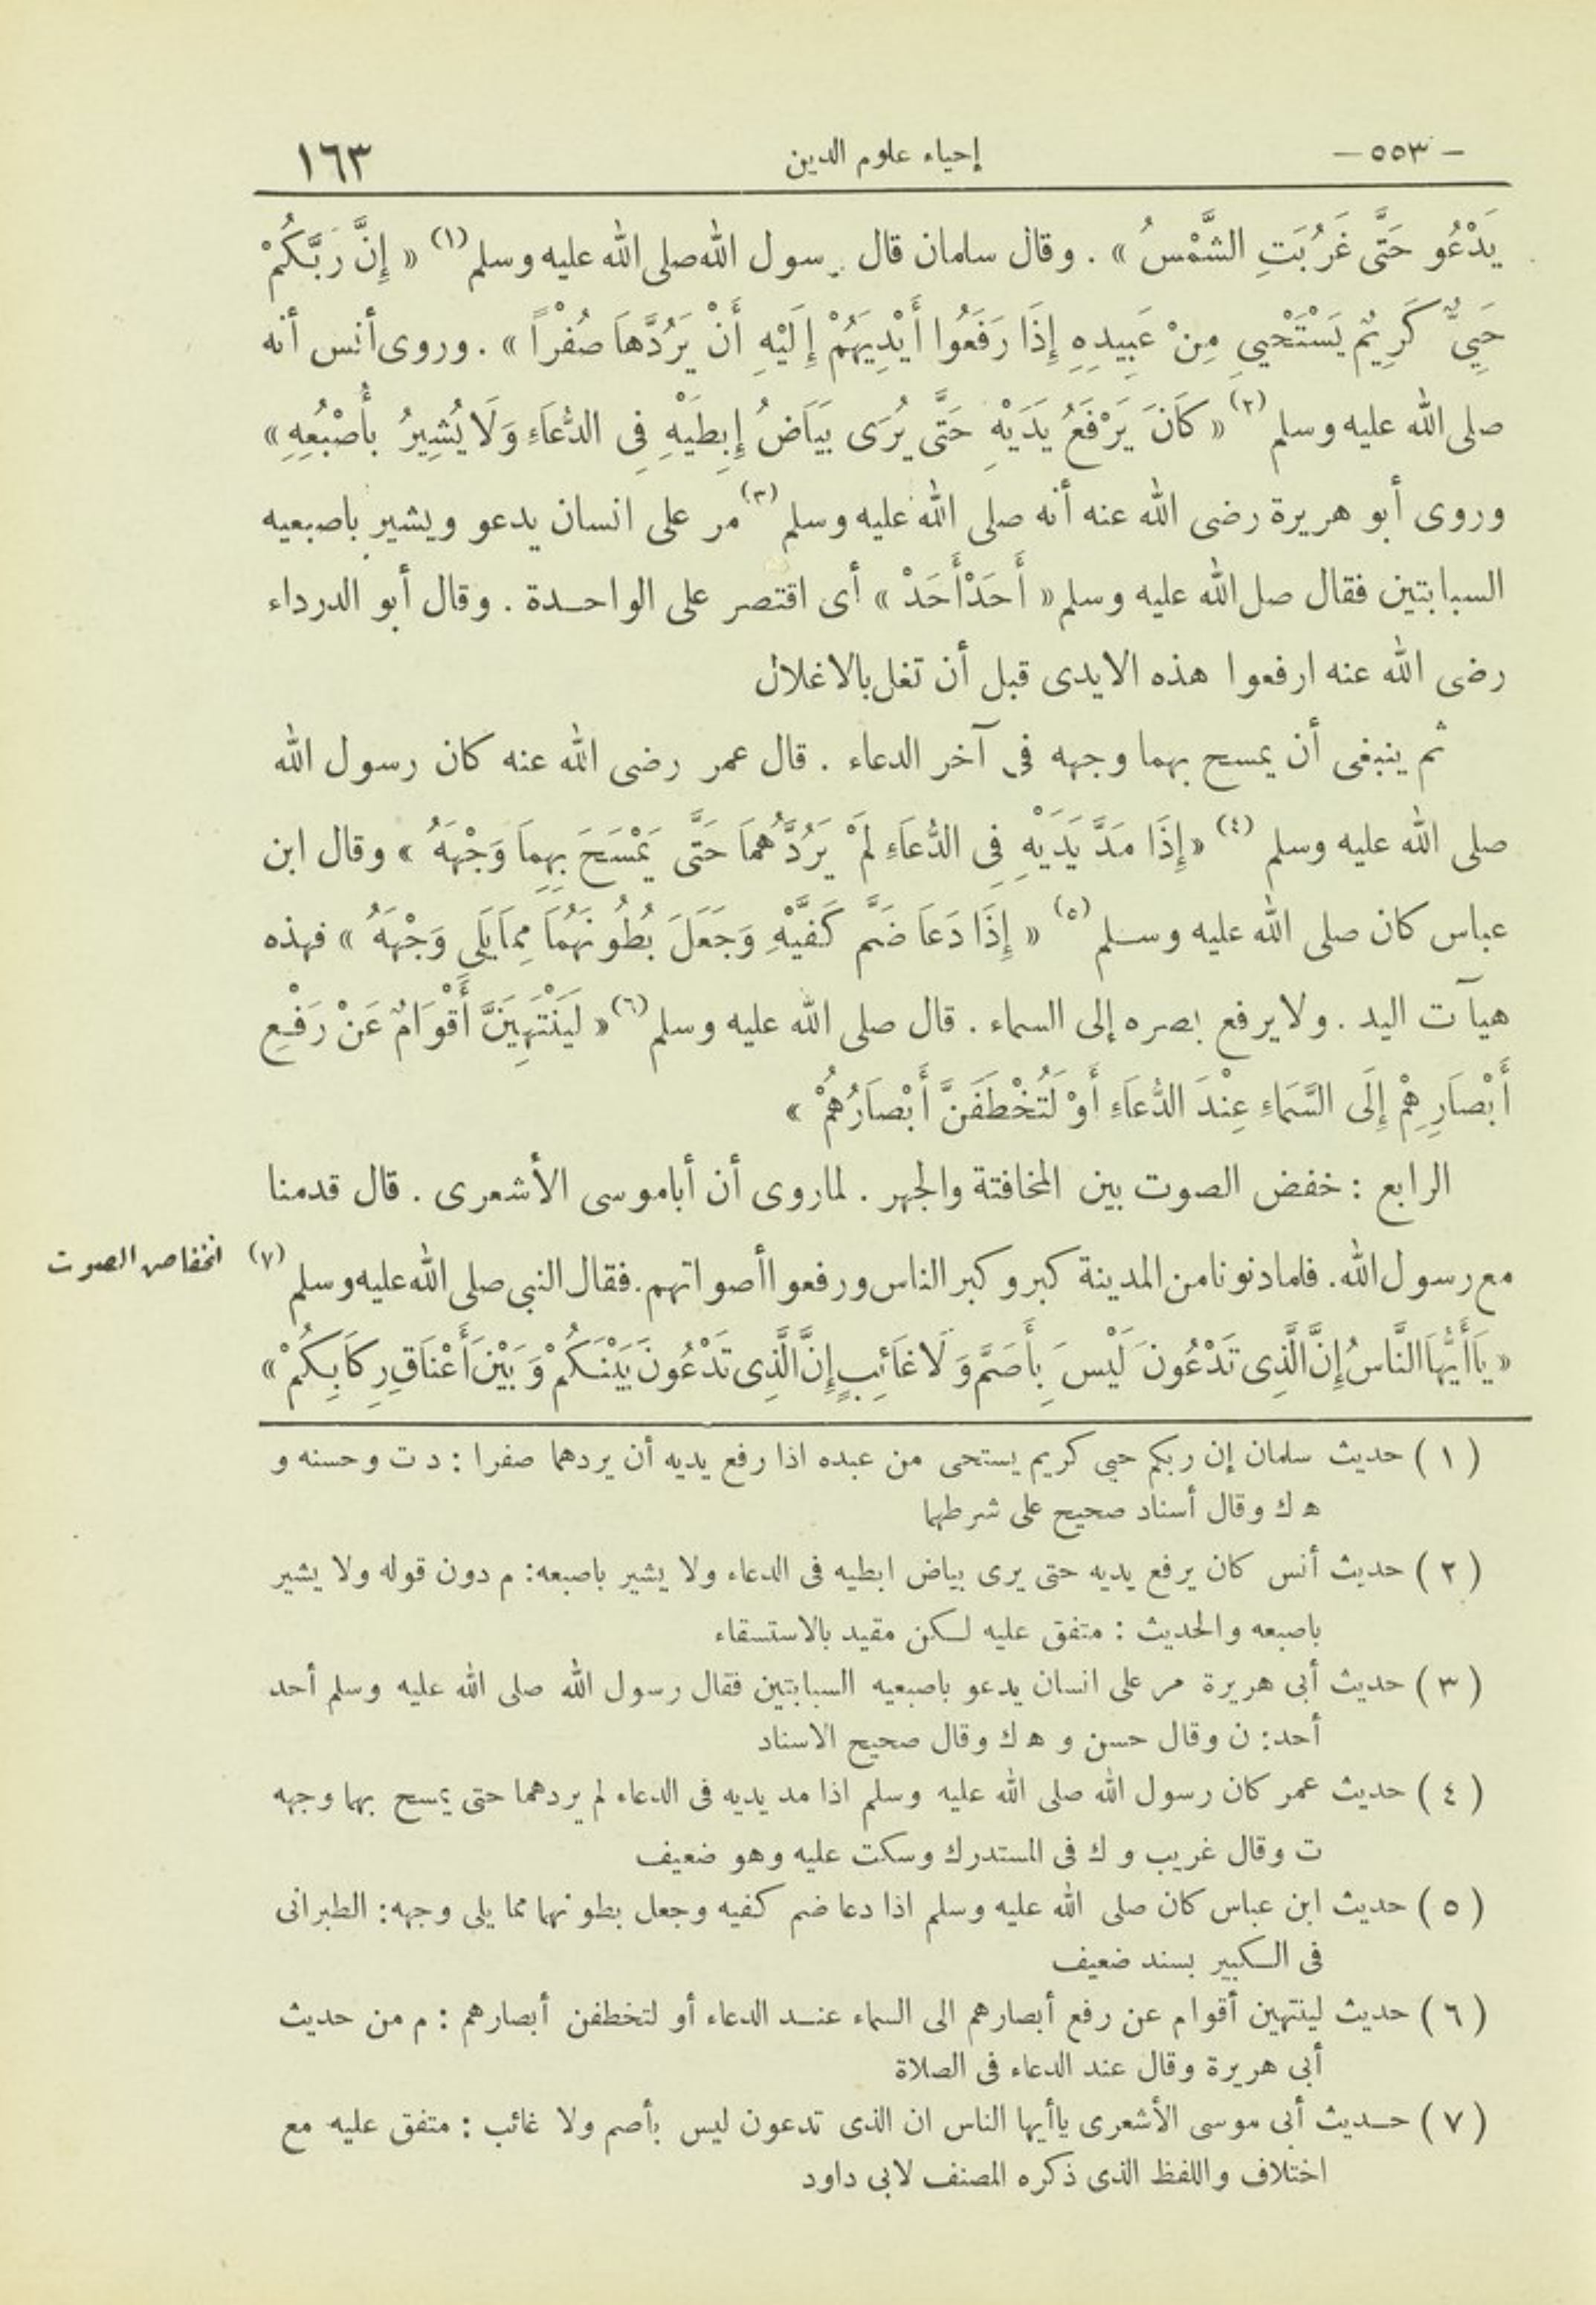 - ٥٥٣ - إحياء علوم الدين ١٦٣
يَدْعُو حَتَّى غَرُبَتِ الشَّمْسُ » . وقال سلمان قال رسول الله صلى الله عليه وسلم (١) « إِنَّ رَبَّكُمْ
حَيِيٌّ كَرِيمٌ يَسْتَحْيِي مِنْ عَبِيدِهِ إِذَا رَفَعُوا أَيْدِيَهُمْ إِلَيْهِ أَنْ يَرُدَّهاَ صُفْراً » . وروى أنس أنه
صلى الله عليه وسلم (٢) « كَانَ يَرْفَعُ يَدَيْهِ حَتَّى يُرَى بَيَاَضُ إِبِطَيْهِ فِى الدُّعاَءِ وَلَا يُشِيرُ بأُصْبُعِهِ »
وروى أبو هريرة رضى الله عنه أنه صلى الله عليه وسلم (٣) مر على انسان يدعو ويشير باصبعيه
السبابتين فقال صل الله عليه وسلم « أَحَدْ أَحَدْ » أى اقتصر على الواحـدة . وقال أبو الدرداء
رضى الله عنه ارفعوا هذه الايدى قبل أن تغل بالاغلال
ثم ينبغى أن يمسح بهما وجهه فى آخر الدعاء . قال عمر رضى الله عنه كان رسول الله
صلى الله عليه وسلم (٤) « إِذَا مَدَّ يَدَيْهِ فِى الدُّعاَءِ لَمْ يَرُدَّهُمَا حَتَّى يَمْسَحَ بِهِماَ وَجْهَهُ » وقال ابن
عباس كان صلى الله عليه وسـلم (٥) « إِذَا دَعاَ ضَمَّ كَفَّيْهِ وَجَعَلَ بُطُونَهُمَا مِمَّا يَلِى وَجْهَهُ » فهذه
هيآت اليد . ولا يرفع بصره إلى السماء . قال صلى الله عليه وسلم (٦) « لَيَنْتَهِيَنَّ أَقْوَامٌ عَنْ رَفْعِ
أَبْصاَرِهِمْ إِلَى السَّمَاءِ عِنْدَ الدُّعاَءِ أَوْ لَتُخْطَفَنَّ أَبْصاَرُهُمْ »
الرابع : خفض الصوت بين المخافتة والجهر . لما روى أن أبا موسى الأشعرى . قال قدمنا
مع رسول الله . فلما دنونا من المدينة كبر وكبر الناس ورفعوا أصواتهم . فقال النبى صلى الله عليه وسلم (٧)
انخفاض الصوت
« يَاأَيُّهاَ النَّاسُ إِنَّ الَّذِى تَدْعُونَ لَيْسَ بِأَصَمَّ وَلَا غاَئِبٍ إِنَّ الَّذِى تَدْعُونَ بَيْنَكُمْ وَبَيْنَ أَعْناَقِ رِكاَبِكُمْ »
( ١ ) حديث سلمان إن ربكم حيى كريم يستحى من عبده اذا رفع يديه أن يردهما صفرا : د ت وحسنه و
ه ك وقال أسناد صحيح على شرطهما
( ٢ ) حديث أنس كان يرفع يديه حتى يرى بياض ابطيه فى الدعاء ولا يشير باصبعه : م دون قوله ولا يشير
باصبعه والحديث : متفق عليه لـكن مقيد بالاستسقاء
( ٣ ) حديث أبى هريرة مر على انسان يدعو باصبعيه السبابتين فقال رسول الله صلى الله عليه وسلم أحد
أحد : ن وقال حسن و ه ك وقال صحيح الاسناد
( ٤ ) حديث عمر كان رسول الله صلى الله عليه وسلم اذا مد يديه فى الدعاء لم يردهما حتى يمسح بهما وجهه
ت وقال غريب و ك فى المستدرك وسكت عليه وهو ضعيف
( ٥ ) حديث ابن عباس كان صلى الله عليه وسلم اذا دعا ضم كفيه وجعل بطونهما مما يلى وجهه : الطبرانى
فى الـكبير بسند ضعيف
( ٦ ) حديث لينتهين أقوام عن رفع أبصارهم الى السماء عنـد الدعاء أو لتخطفن أبصارهم : م من حديث
أبى هريرة وقال عند الدعاء فى الصلاة
( ٧ ) حـديث أبى موسى الأشعرى ياأيها الناس ان الذى تدعون ليس بأصم ولا غائب : متفق عليه مع
اختلاف واللفظ الذى ذكره المصنف لابى داود